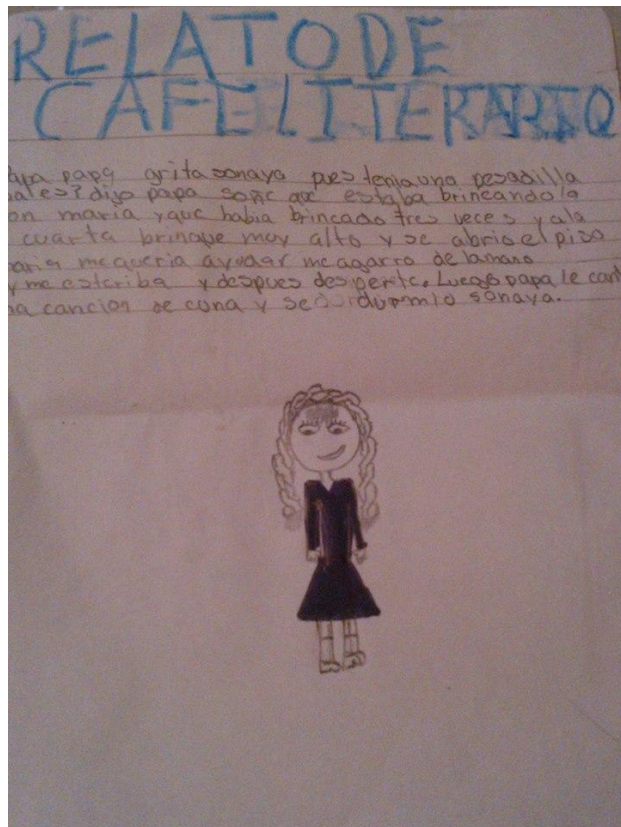 RELATO DE
CAFE LITERARIO
apa papa grita sonaya pues tenia una pesadilla
ales? dijo papa soñe que estaba brincando la
on maria y que habia brincado tres veces y ala
cuarta brinque muy alto y se abrio el piso
maria me queria ayudar me agarro de la mano
y me estariba y despues desperte. Luego papa le cant
na cancion de cuna y se durmio sonaya.